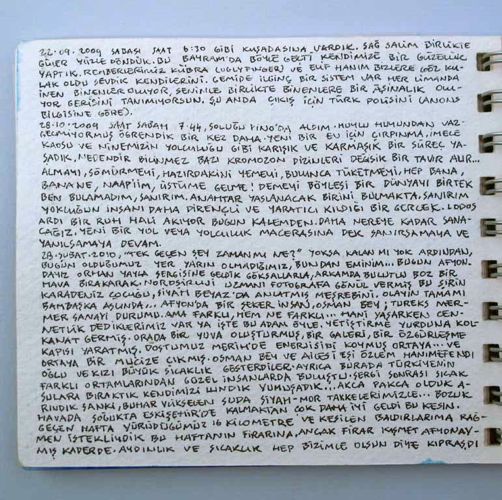 22.09.2009 SABASI SAAT 6:30 GİBİ KUŞADASINA VARDIK. SAĞ SALİM BİRLİKTE
GÜLER YÜZLE DÖNDÜK. BU BAYRAM'DA BÖYLE GEÇTİ KENDİMİZE BİR GÜZELLİK
YAPTIK. REHBERLERİMİZ KÜBRA (UGLYFINGER) VE ELİF HANIM BİZLERE GÖZ KU-
LAK OLDU SEVDİK KENDİLERİNİ. GEMİDE İLGİNÇ BİR SİSTEM VAR HER LİMANDA
İNEN BİNENLER OLUYOR, SENİNLE BİRLİKTE BİNENLERE BİR AŞİNALIK OLU-
YOR GERİSİNİ TANIMIYORSUN. ŞU ANDA ÇIKIŞ İÇİN TÜRK POLİSİNİ (ANONS
BİLGİSİNE GÖRE).
28-10-2009 SAAT SABAH 7:44, SOLUĞU FINO'DA ALSIM. HUYLU HUYUNDAN VAZ-
GEÇMİYORMUŞ ÖĞRENDİK BİR KEZ DAHA. YENİ BİR EV İÇİN ÇIRPINMA, İMECE
KAOSU VE NİNEMİZİN YOLCULUĞU GİBİ KARIŞIK VE KARMAŞIK BİR SÜREÇ YA-
ŞADIK, NEDENDİR BİLİNMEZ BAZI KROMOZON DİZİNLERİ DEĞİŞİK BİR TAVIR ALIR...
ALMAYI, SÖMÜRMEYİ, HAZIRDAKİNİ YEMEYİ, BULUNCA TÜKETMEYİ, HEP BANA,
BANA NE, NAAPİİM, ÜSTÜME GELME! DEMEYİ BÖYLESİ BİR DÜNYAYI BİRTEK
BEN BULAMADIM, SANIRIM. ANAHTAR YASLANACAK BİRİNİ BULMAKTA, SANIRIM
YOKLUĞUN İNSANI DAHA DİRENÇLİ VE YARATICI KILDIĞI BİR GERÇEK. LODOS
ARDI BİR RUH HALİ AKIYOR BUGÜN KALEMDEN. DAHA NEREYE KADAR SANA-
CAĞIZ. YENİ BİR YOL VEYA YOLCULUK MACERASINA DEK SANIRSAMAYA VE
YANILSAMAYA DEVAM.
28-ŞUBAT-2010, "TEK GEÇEN ŞEY ZAMAN MI NE?" YOKSA KALAN MI YOK ARDINDAN,
BUGÜN OLDUĞUMUZ YER YARIN OLMADIĞIMIZ, BUNDAN EMİNİM. BUGÜN AFYON-
DAYIZ ORHAN YAYLA SERGİSİNE GELDİK GÖKSALLARLA, ARKAMDA BULUTLU BOZ BİR
HAVA BIRAKARAK. NORDSIRILUI UZMANI FOTOĞRAFA GÖNÜL VERMİŞ BU ŞİRİN
KARADENİZ ÇOCUĞU, SİYAH BEYAZ'DA ANLATMIŞ MEŞREBİNİ. OLAYIN TAMAMI
BAMBAŞKA ASLINDA... AFYON'DA BİR ŞEKER İNSAN. OSMAN BEY, TUREKS MER-
MER SANAYİ DURUMU. AMA FARKLI, HEM NE FARKLI... HANİ YAŞARKEN CEN-
NETLİK DEDİKLERİMİZ VAR YA İŞTE BU ADAM ÖYLE. YETİŞTİRME YURDUNA KOL-
KANAT GERMİŞ. ORADA BİR YUVA OLUŞTURMUŞ, BİR GALERİ, BİR ÖZGÜRLEŞME
KAPISI YARATMIŞ. DOSTUMUZ MERİH'DE ENERJİSİNİ KOYMUŞ ORTAYA... VE
ORTAYA BİR MUCİZE ÇIKMIŞ. OSMAN BEY VE AİLESİ EŞİ ÖZLEM HANIMEFENDİ
OĞLU VE KIZI BÜYÜK SICAKLIK GÖSTERDİLER. AYRICA BURADA TÜRKİYENİN
FARKLI ORTAMLARINDAN GÜZEL İNSANLARDA BULUŞTU. SERGİ SONRASI SICAK
SULARA BIRAKTIK KENDİMİZİ LUNDİK YUMUŞADIK... AKÇA PAKÇA OLDUK A-
RINDIK SANKİ, BUHAR YÜKSELEN SUDA SİYAH-MOR TAKKELERİMİZLE... BOZUK
HAVADA SOĞUKTA ESKİŞEHİR'DE KALMAKTAN ÇOK DAHA İYİ GELDİ BU KESİN.
GEÇEN HAFTA YÜRÜDÜĞÜMÜZ 16 KİLOMETRE VE KESİLEN BALDIRLARIMA RAĞ-
MEN İSTEKLİYDİK BU HAFTANIN FİRARINA, ANCAK FİRAR KISMET AFYONAY-
MIŞ KADERDE. AYDINLIK VE SICAKLIK HEP BİZİMLE OLSUN DİYE KIPRAŞDI